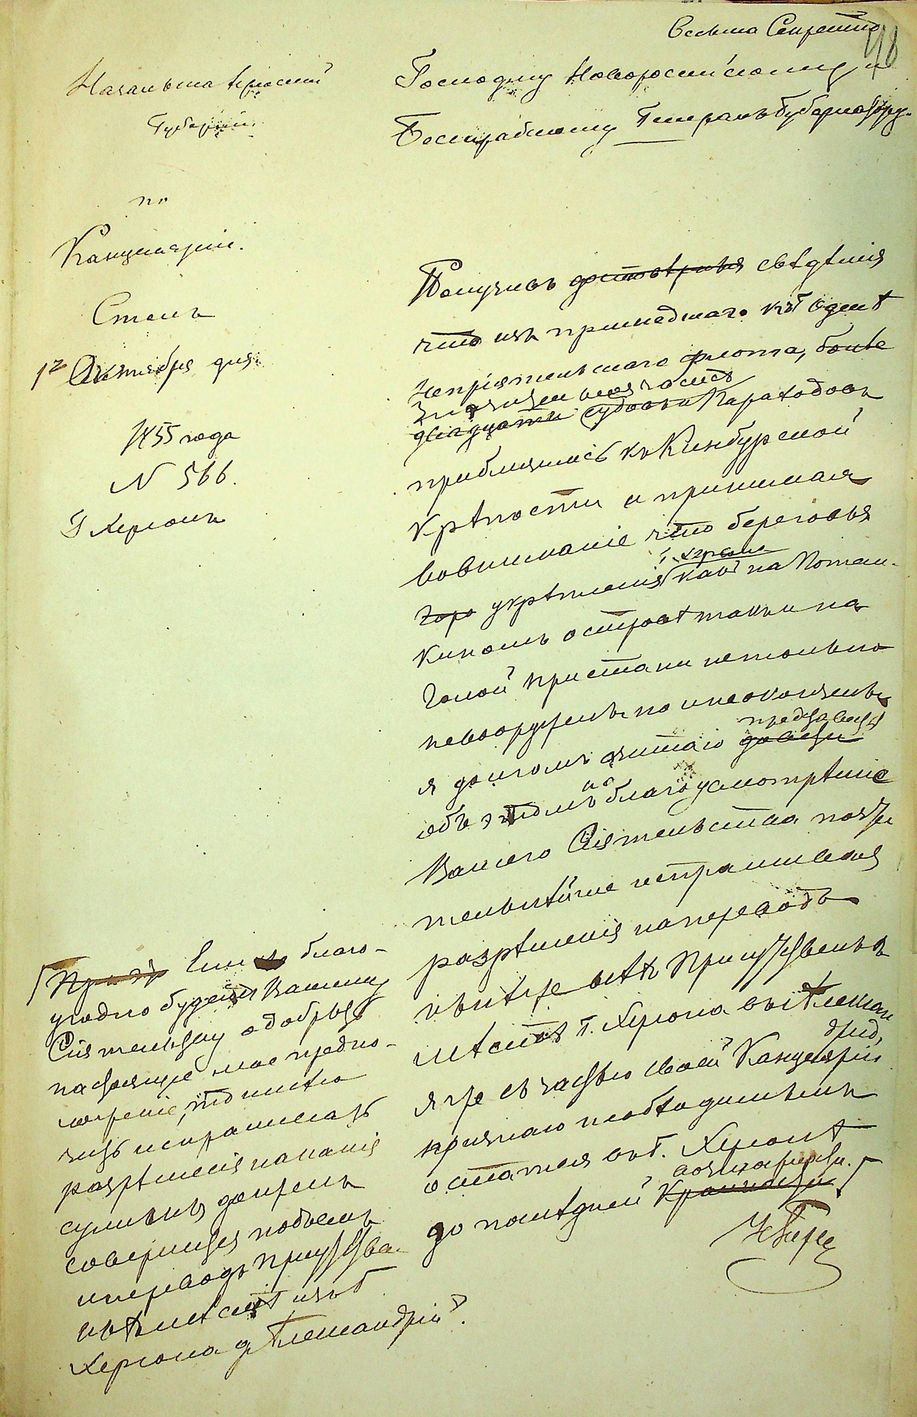 Весьма Секретно
48
Начальника Херсонской
Губернии.
по
Канцелярии.
Столъ
12 Октября дня.
1855 года
N 566.
Г Херсонъ
Господину Новороссійскому и
Бессарабскому Генералъ Губернатору.
Получивъ достовѣрныя свѣдѣнія
что изъ пришедшаго къ Одессѣ
Непріятельскаго флота, болѣе
значительная часть
двадцати судовъ и Пароходовъ
приблизилась къ Кинбурнской
Крѣпости и принимая
вовниманіе что береговыя
укрѣпленія какъ на Потем-
киномъ островѣ такъ и на
Голой пристани нетолько
невооружены но и неокончены,
я долгомъ считаю довести
представить
объ этомъ на благоусмотрѣніе
Вашего Сіятельства почти
тельнѣйше испрашивая
разрѣшенія на переводъ
нынѣ же всѣхъ Присутственныхъ
мѣстъ г. Херсона въ Алексан
дрію,
я же съ частью своей Канцеляріи
признаю необходимымъ
остаться въ г. Херсонѣ
до послѣдней
возможности.
Если благо-
угодно будетъ Вашему
Сіятельству одобрить
настоящее мое предпо-
ложеніе, то имѣю
честь испрашивать
разрѣшенія на какія
суммы должен
совершиться подъемъ
и переводъ Присутствен-
ныхъ мѣстъ изъ
Херсона въ Александрію.